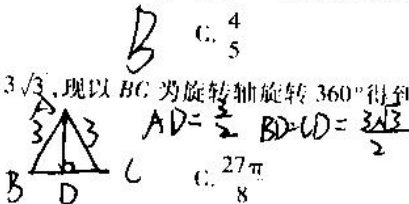 B C. 4/5
3√3, 现以 BC 为旋转轴旋转 360°得到
A
3 3 AD=3/2 BD=CD=3√3/2
B D C C. 27π/8